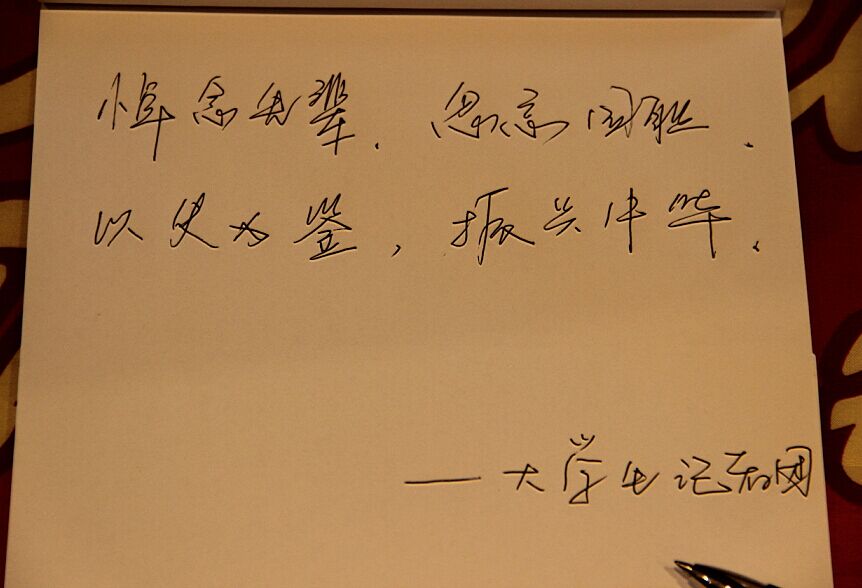 悼念先辈，忽忘国耻，
以史为鉴，振兴中华。
——大学生记者团